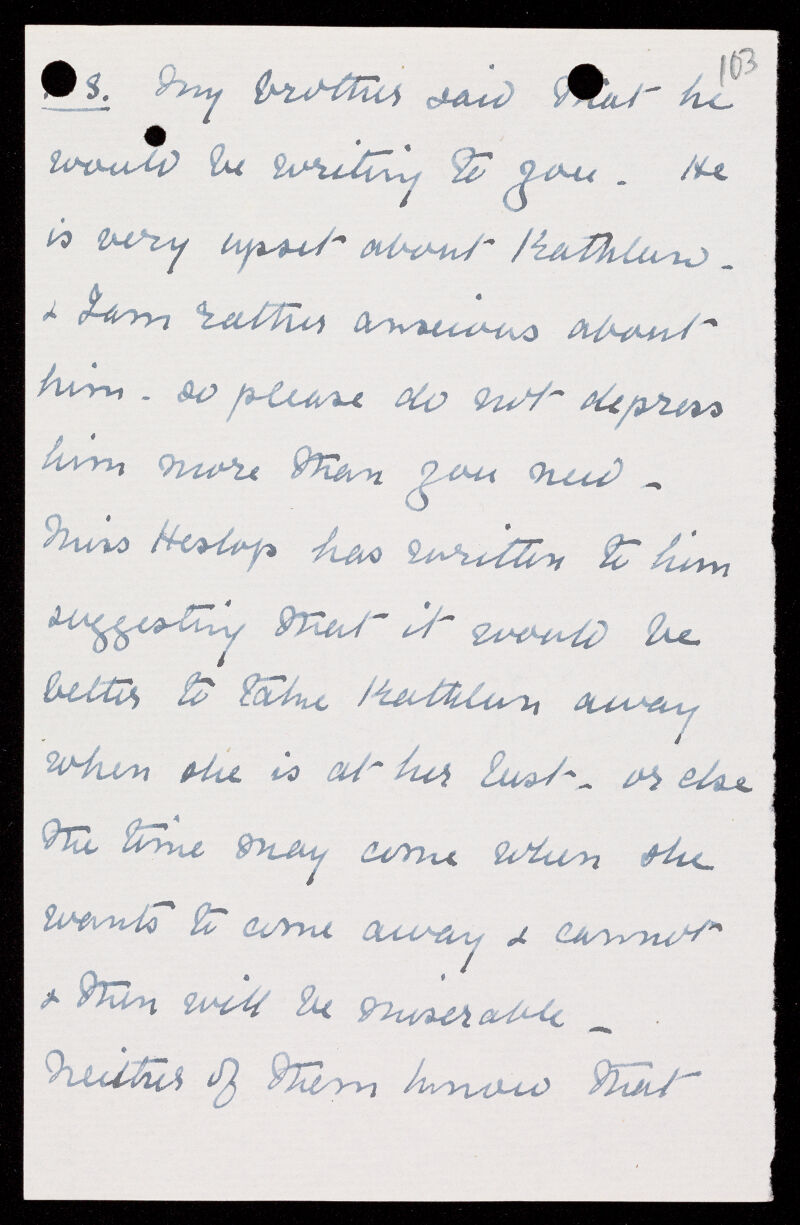 103
P.S. My brother said that he
would be writing to you. He
is very upset about Kathleen -
& I am rather anxious about
him - so please do not depress
him more than you need -
Miss Heslop has written to him
suggesting that it would be
better to take Kathleen away
when she is at her best - or else
the time may come when she
wants to come away & cannot
& then will be miserable -
Neither of them know that